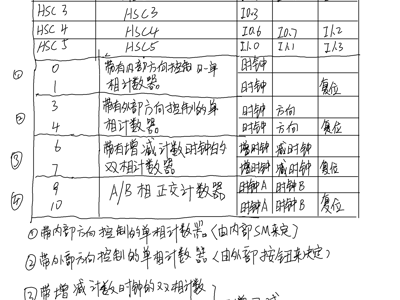 HSC3 HSC3 I0.3
HSC4 HSC4 I0.6 I0.7 I1.2
HSC5 HSC5 I1.0 I1.1 I1.3
① 0 带有内部方向控制的单 时钟
1 相计数器 时钟 复位
② 3 带有外部方向控制的单 时钟 方向
4 相计数器 时钟 方向 复位
③ 6 带有增减计数时钟的 增时钟 减时钟
7 双相计数器 增时钟 减时钟 复位
9 A/B相正交计数器 时钟A 时钟B
10 时钟A 时钟B 复位
①带内部方向控制的单相计数器(由内部SM来定)
②带外部方向控制的单相计数器(由外部按钮来决定)
带增减计数时钟的双相计数